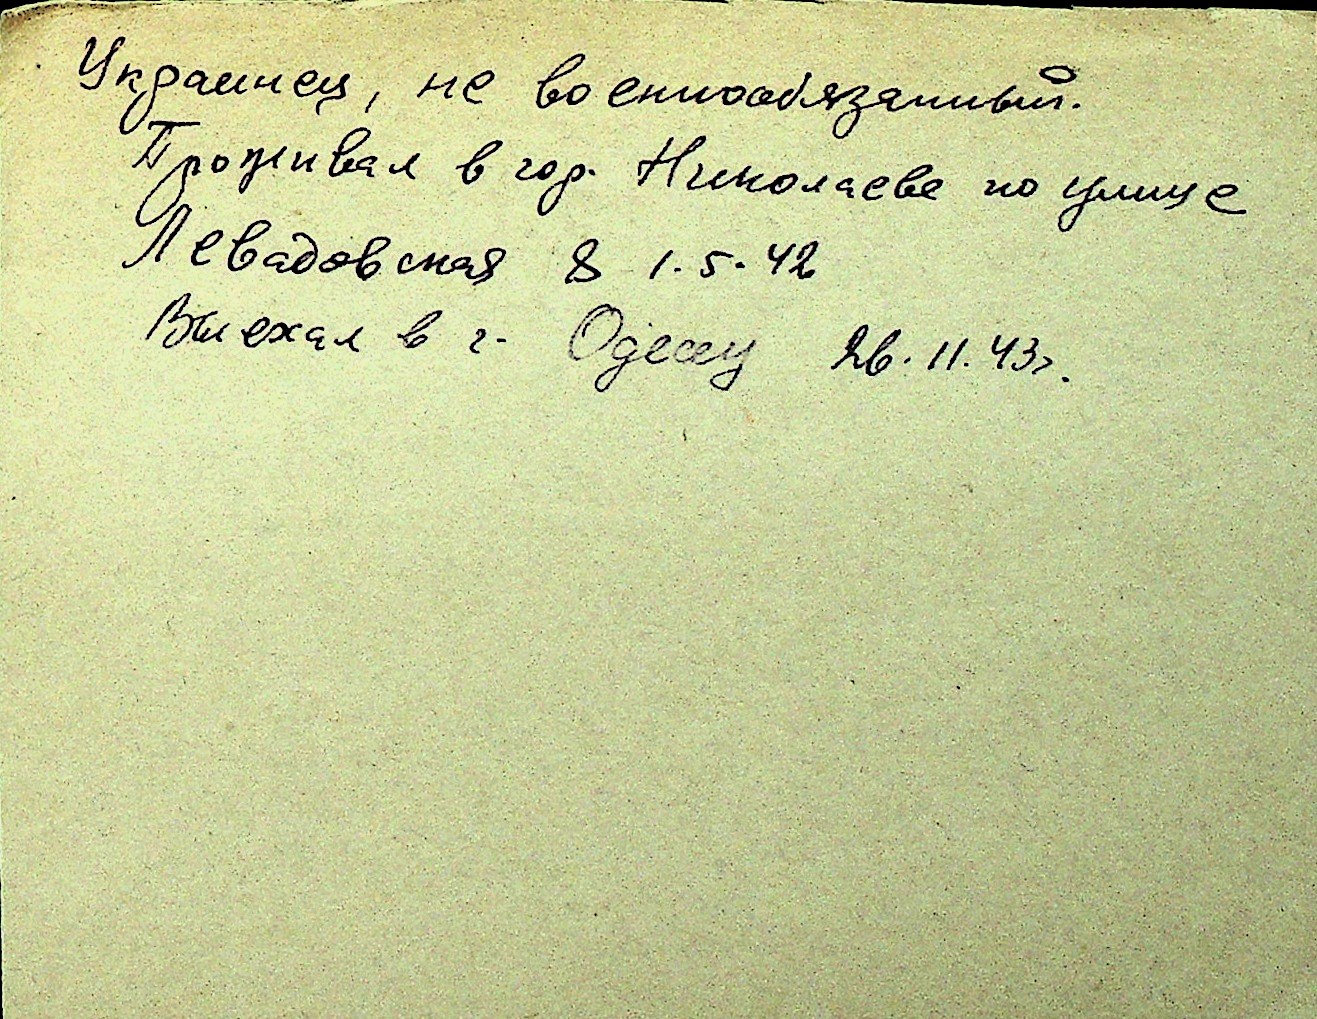 Украинец, не военнообязанный.
Проживал в гор. Николаеве по улице
Левадовская 8 1.5.42
Выехал в г. Одессу 26.11.43г.